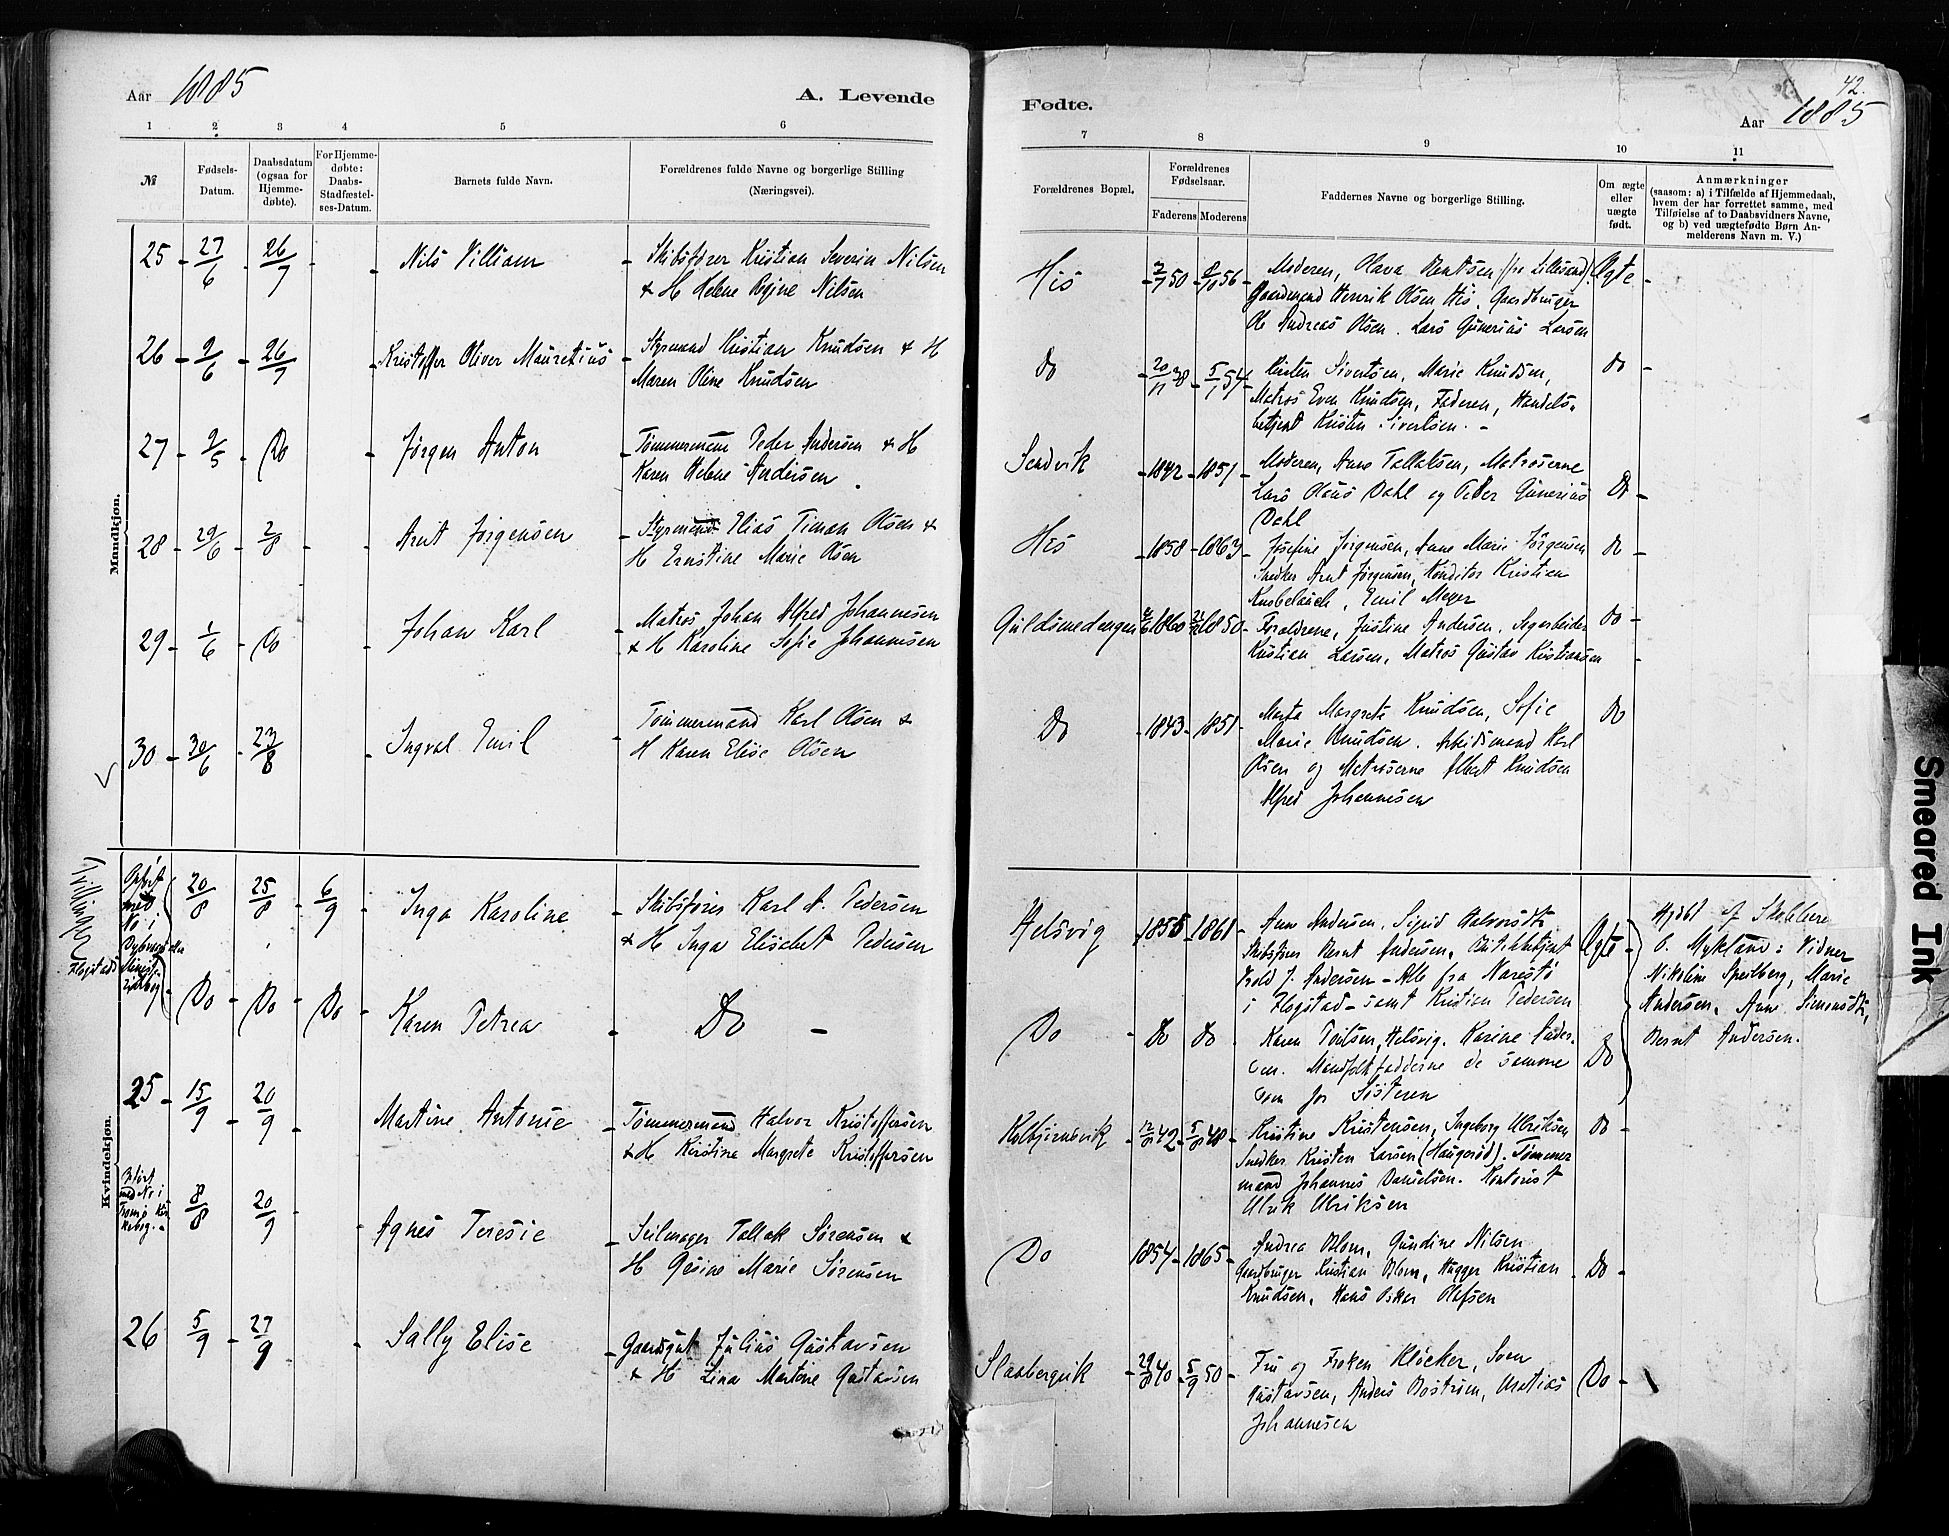 Aar 1885
A. Levende
1 2 3 4 5 6
№
Fødsels-
Datum.
Daabsdatum
(ogsaa for
Hjemme-
døbte).
For Hjemme-
døbte:
Daabs-
Stadfæstel-
ses-Datum.
Barnets fulde Navn.
Forældrenes fulde Navne og borgerlige Stilling
(Næringsvei).
Mandkjøn.
25 - 27/6 - 26/7 - - Nils Villiam - Skibsfører Kristian Severin Nilsen
& H Helene Regine Nilsen
26 - 2/6 - 26/7 - Kristoffer Oliver Mauretius - Styrmand Kristian Knudsen & H
Maren Oline Knudsen
27 - 2/5 - Do - Jørgen Anton - Tømmermand Peder Andersen & H
Karen Helene Andersen
28 - 29/6 - 2/8 - - Arnt Jørgensen - Styrmand Elias Timan Olsen &
H Ernstine Marie Olsen
29 - 1/6 - Do - Johan Karl - Matros Johan Alfred Johannesen
& H Karoline Sofie Johannesen
30 - 30/6 - 23/8 - Ingval Emil - Tømmermand Karl Olsen &
H Karen Elise Olsen
Tvillinger
Kvindekjøn.
Opført
med
No i
Flogstads
20/8 - 25/8 - 6/9 - Inga Karoline - Skibsfører Karl A. Pedersen
& H Inga Elisebet Pedersen
Do - Do - Do - Karen Petrea - Do -
25 - 15/9 - 20/9 - Martine Antonie - Tømmermand Halvor Kristoffersen
& H Kirstine Margrete Kristoffersen
8/8 20/9 - Agnes Teresie - Seilmager Tallak Sørensen &
H Gesine Marie Sørensen
26 5/9 - 27/9 Sally Elise - Gaardsgut Julius Gustavsen
& H Lina Martine Gustavsen
42.
Fødte.
Aar 1885
7 8 9 10 11
Forældrenes Bopæl.
Forældrenes
Fødselsaar.
Faderens Moderens
Faddernes Navne og borgerlige Stilling.
Om ægte
eller
uægte
født.
Anmærkninger
(saasom: a) i Tilfælde af Hjemmedaab,
hvem der har forrettet samme, med
Tilføielse af to Daabsvidners Navne,
og b) ved uægtefødte Børn An-
melderens Navn m. V.)
His - 2/7 50 - 8/10 56 - Moderen, Olava Bentsen (fra Lillesand). Ægte -
Gaardmand Henrik Olsen His, Gaardbruger
Ole Andreas Olsen. Lars Gunerius Larsen
Do - 20/11 38 - 5/1 54 - Kirsten Sivertsen, Marie Knudsen, Do -
Matros Even Knudsen, Faderen, Handels-
betjent Kristen Sivertsen. -
Sandvik - 1842 - 1851 - Moderen, Anne Tallaksen, Matroserne
Lars Olaus Dahl og Peder Gunerius Do -
Dahl
His - 1858 - 1863 - Josefine Jørgensen, Anne Marie Jørgensen Do -
Snedker Arnt Jørgensen, Konditor Kristian
Emil Meyer
Guldsmedengen 1860 1850 - Forældrene, Justine Andersen, Sagarbeider Do -
Kristian Larsen, Matros Gustav Kristiansen -
Do - 1843 - 1851 - Marta Margrete Knudsen, Sofie Do
Marie Knudsen. Arbeidsmand Karl
Olsen og Matroserne Albert Knudsen
Alfred Johannesen
Helsvig - 1855 - 1861 - Anne Andersen, Sigrid Halvorsdt.
Skibsfører Bernt Andersen, Butikbetjent Ægte -
J. Andersen - Alle fra Narestø
i Flogstad - samt Kristian Pedersen
Do - Do Do - Karen Poulsen, Helsvig. Karine Ander-
sen. Mandfolkfadderne de samme Do
som for Søsteren
Hjdbt af
O. Mykland: Vidner
Nikoline Spedberg, Marie
Andersen, Anne Simonsdt.,
Bernt Andersen.
Kolbjørnsvik - 12/8 42 - 5/8 48 - Kristine Kristensen, Ingeborg Ulriksen Do -
Snedker Kristen Larsen (Haugerød). Tømmer
mand Johannes Danielsen. Kontorist
Ulrik Ulriksen
Do 1854 - 1865 - Andrea Blom, Gundine Nilsen
Gaardbruger Kristian Blom, Hugger Kristian - Do -
Knudsen, Hans Oskar Olafsen
Slaabervik - 29/8 40 - 5/9 50 - Fru og Frøken Kløcker, Sven Do -
Gustavsen, Anders Bostrøm, Matias
Johannesen
Smeared Ink